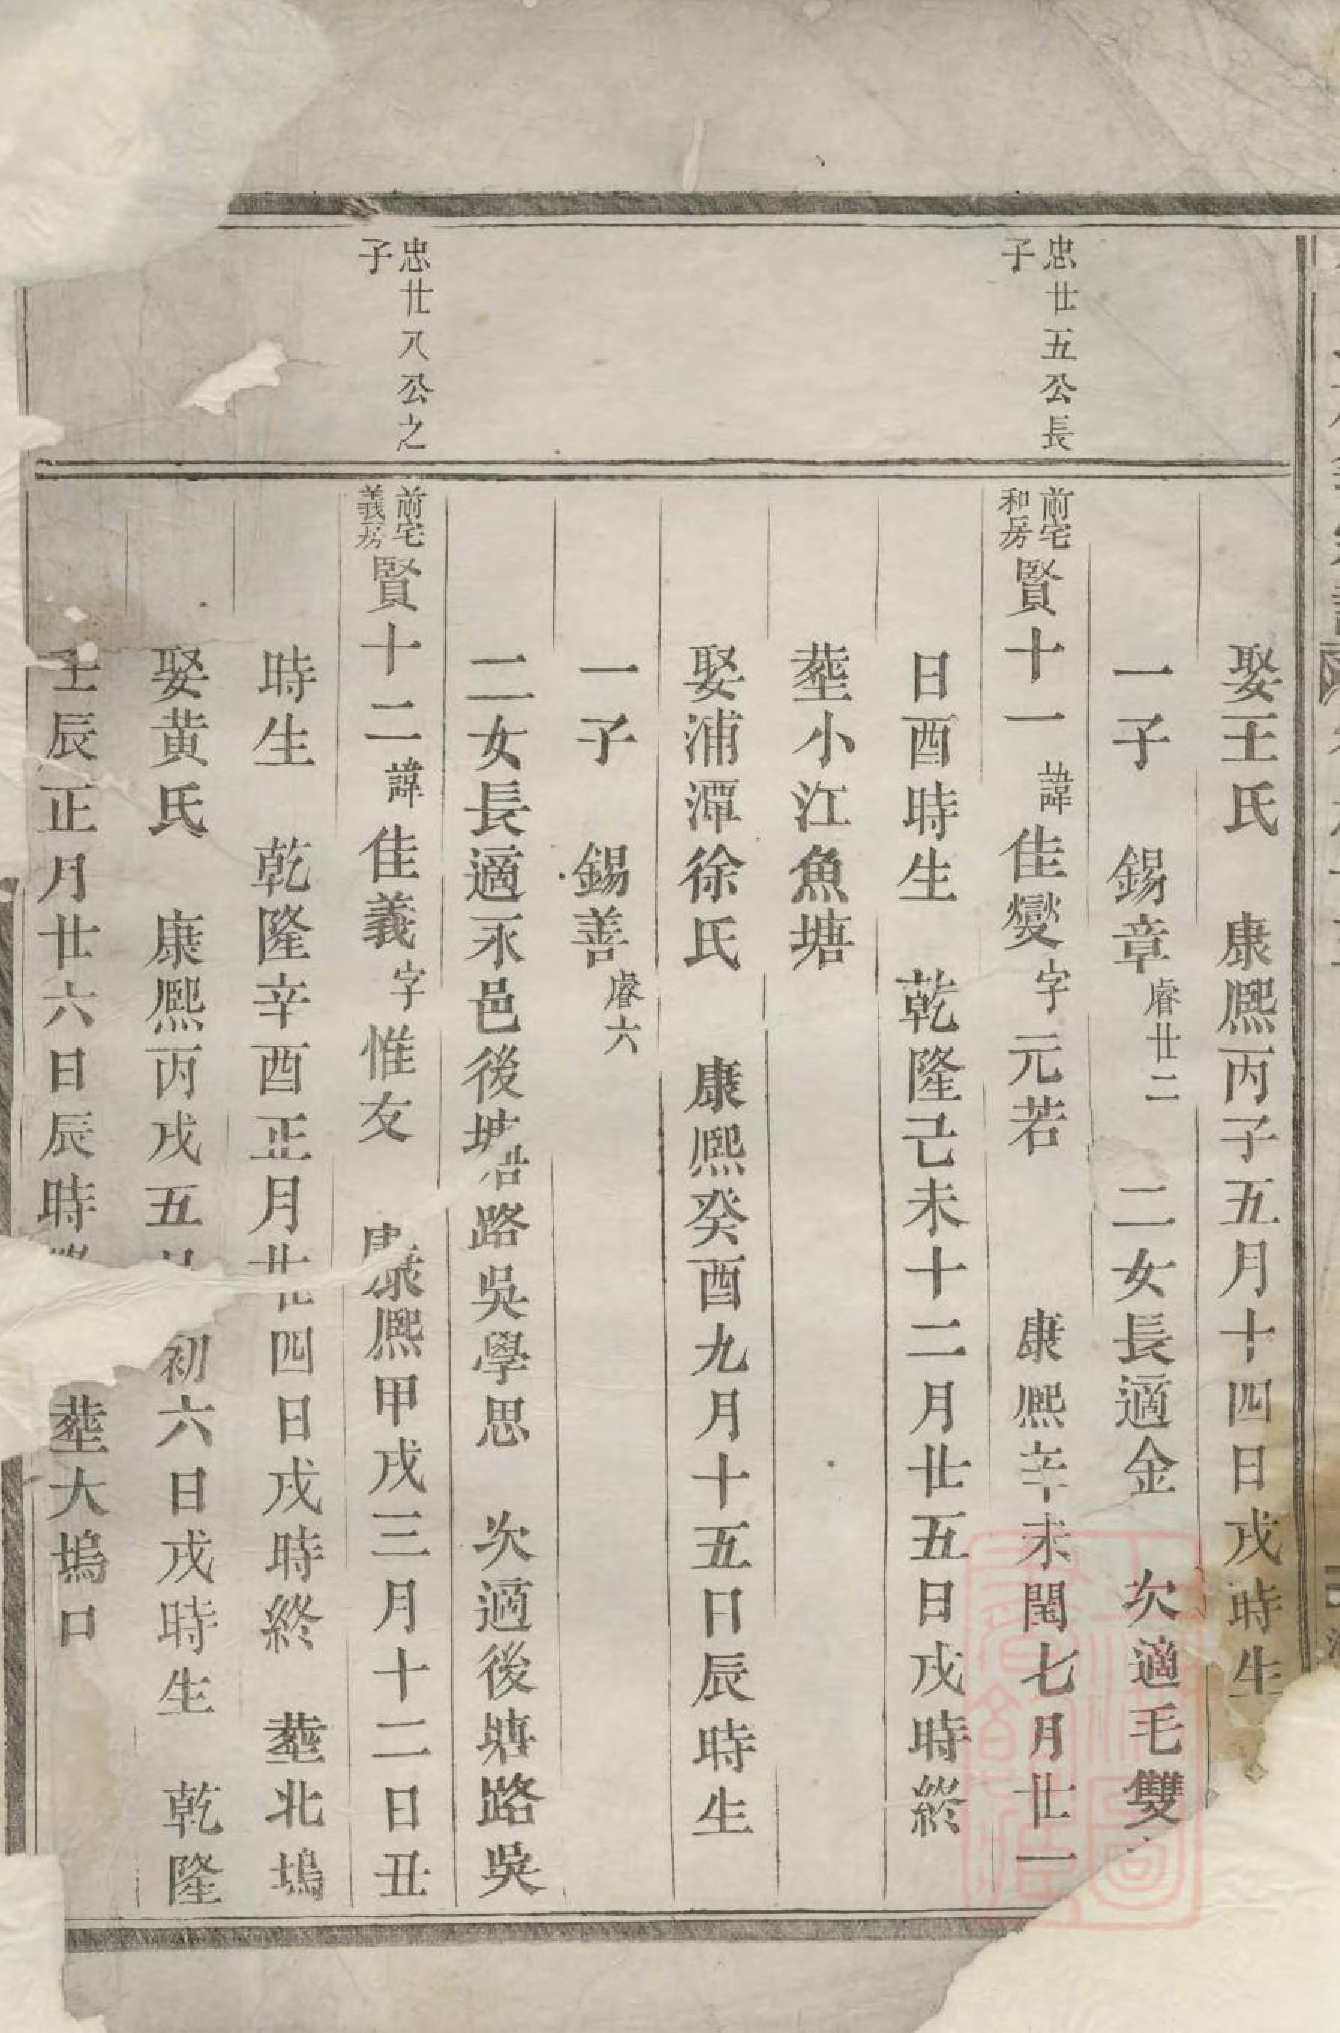 娶王氏　康熈丙子五月十四日戌時生
一子　錫章睿廿二　二女長適金　次適毛雙
忠廿五公長
子
前宅
和房
賢十一諱佳燮字元若　康熈辛未閏七月廿一
日酉時生　乾隆己未十二月廿五日戌時終
塟小江魚塘
娶浦潭徐氏　康熈癸酉九月十五日辰時生
一子　錫善睿六
二女長適永邑後塘路吳學思　次適後塘路吳
忠廿八公之
子
前宅
義房
賢十二諱佳義字惟友　康熈甲戌三月十二日丑
時生　乾隆辛酉正月廿四日戌時終　塟北塢
娶黄氏　康熈丙戌五月初六日戌時生　乾隆
壬辰正月廿六日辰時　塟大塢口